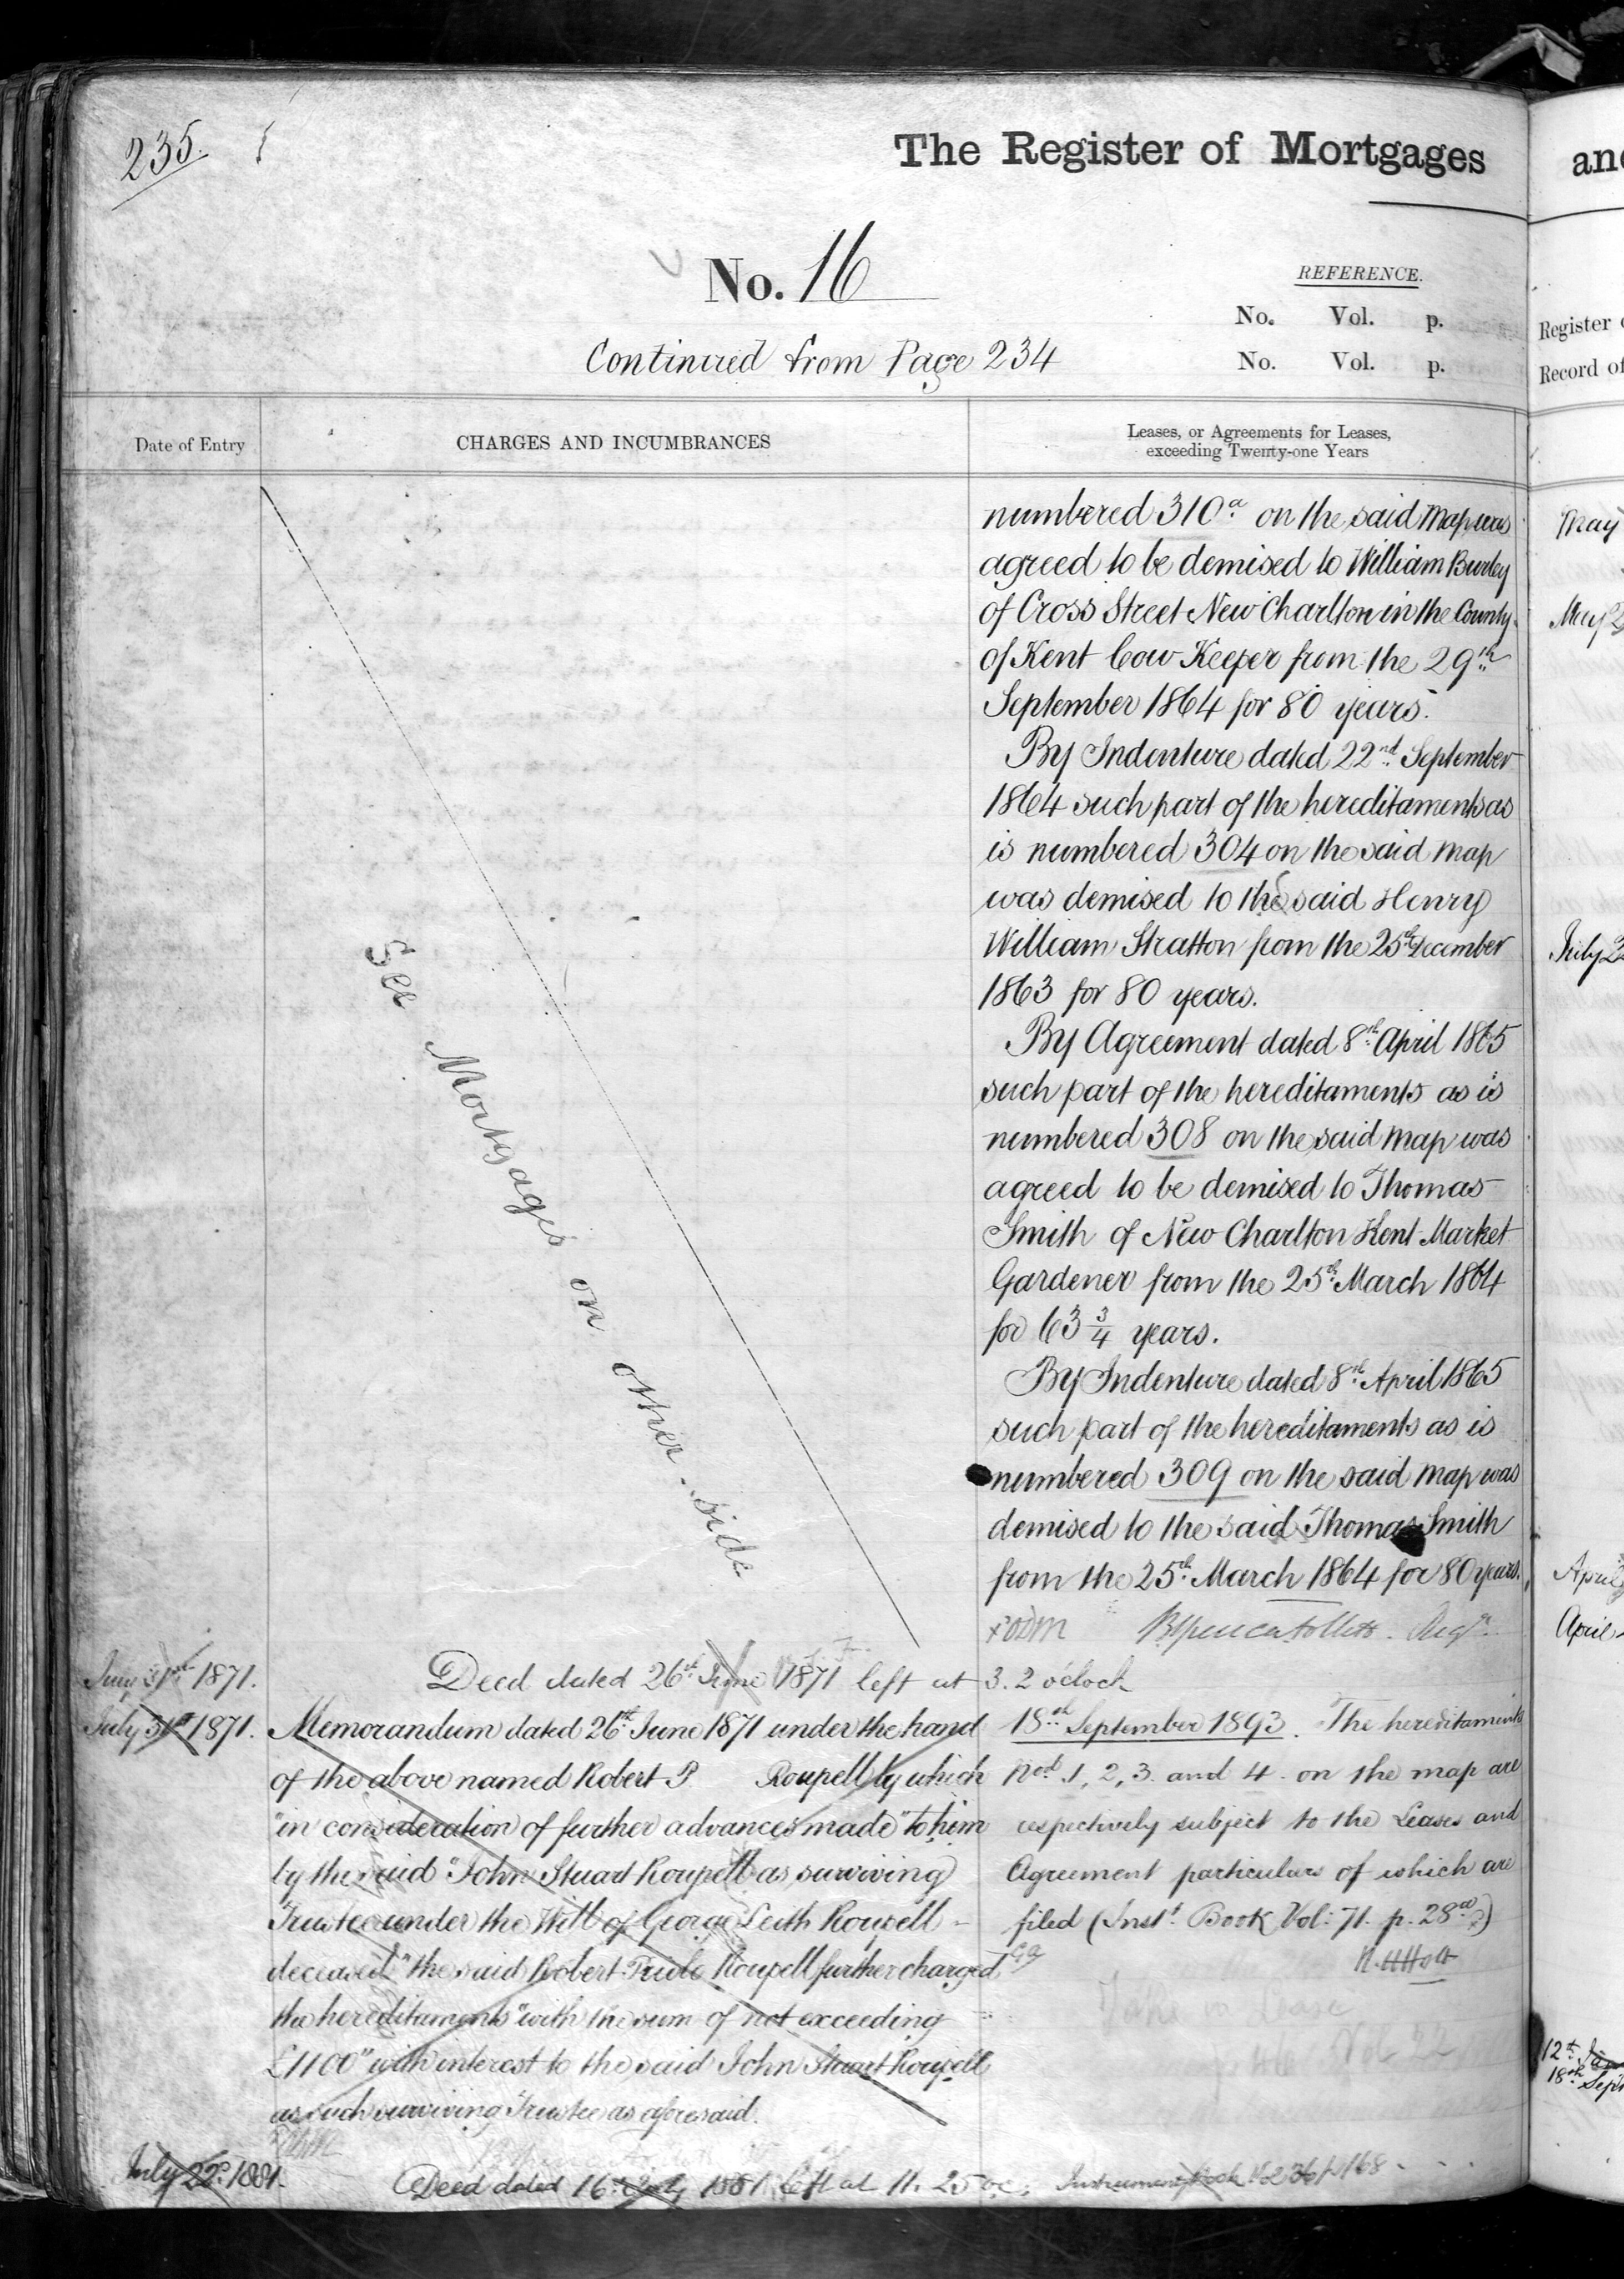 235.
The Register of Mortgages
No. 16
REFERENCE.
No. Vol. p.
No. Vol. p.
Continued from Page 234
Date of Entry
CHARGES AND INCUMBRANCES
Leases, or Agreements for Leases,
exceeding Twenty-one Years
See Mortgages on other side
numbered 310a on the said Map was
agreed to be demised to William Burley
of Cross Street New Charlton in the County
of Kent Cow Keeper from the 29th
September 1864 for 80 years.
By Indenture dated 22nd September
1864 such part of the hereditaments as
is numbered 304 on the said map
was demised to the said Henry
William Stratton from the 25th December
1863 for 80 years.
By Agreement dated 8th April 1865
such part of the hereditaments as is
numbered 308 on the said map was
agreed to be demised to Thomas
Smith of New Charlton Kent Market
Gardener from the 25th March 1864
for 63 3/4 years.
By Indenture dated 8th April 1865
such part of the hereditaments as is
numbered 309 on the said map was
demised to the said Thomas Smith
from the 25th March 1864 for 80 years.
July 31st 1871. Deed dated 26th June 1871 left at 3. 2 o'clock
July 31st 1871. Memorandum dated 26th June 1871 under the hand
of the above named Robert P Roupell by which
"in consideration of further advances made" to him
by the said "John Stuart Roupell as surviving
Trustee under the Will of George Leith Roupell
deceased" the said Robert Prible Roupell further charged
the hereditaments "with the sum of not exceeding
£1100" with interest to the said John Stuart Roupell
as such surviving Trustee as aforesaid.
18th September 1893. The hereditaments
Nos. 1, 2, 3. and 4. on the map are
respectively subject to the Leases and
Agreement particulars of which are
filed (Inst. Book Vol: 71. p. 28)
July 22d 1881. Deed dated 16th July 1881 left at 11. 25 oc; Instrument Book Vol 36 p 168
and
Register
Record of
May
May 2
July 2
April
April
12th
18th Sept